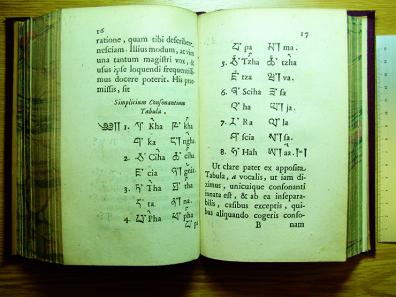 16
ratione, quam tibi describere
nesciam. Illius modum, at vim
una tantum magistri vox, &
usus ipse loquendi frequentissi-
mus docere poterit. His præ-
missis, sit
Simplicium Consonantium
Tabula.
༄༅། 1. ཀ Kha ཁ kha
ག ka ང ngha
2. ཅ Ciha ཆ ciha
ཇ cia ཉ
3. ཏ Tha ཐ tha
ད ta ན na.
4. པ Pha ཕ pha
17
བ pa མ ma.
5. ཙ Tzha ཚ tzha
ཛ tza ཝ va.
6. ཞ Sciha ཟ sa
འ ha ཡ ja.
7. ར Ra ལ la
ཤ scia ས sa.
8. ཧ Hah ཨ aa.
Ut clare patet ex apposita
Tabula, a vocalis, ut iam di-
ximus, unicuique consonanti
innata est, & ab ea insepara-
bilis, casibus exceptis, qui-
bus aliquando cogeris conso-
B nam